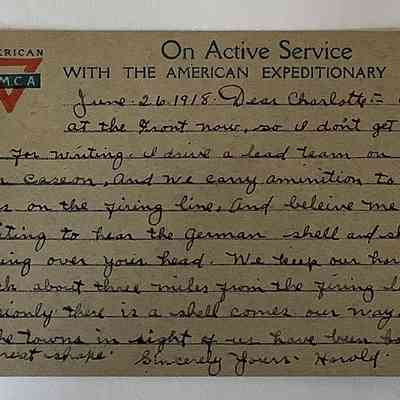 ERICAN
MCA
On Active Service
WITH THE AMERICAN EXPEDITIONARY
June. 26, 1918. Dear Charlotte:=
at the Front now, so I don't get
For writing. I drive a lead team on
Caseon, And we carry aminition to
on the firing line, And beleive me
ting to hear the German shell and sh
ing over your head. We keep our hor
about three miles from the firing l
sionly there is a shell comes our way
he towns in sight of us have been bo
rest shape. Sincerely Yours- Harold.